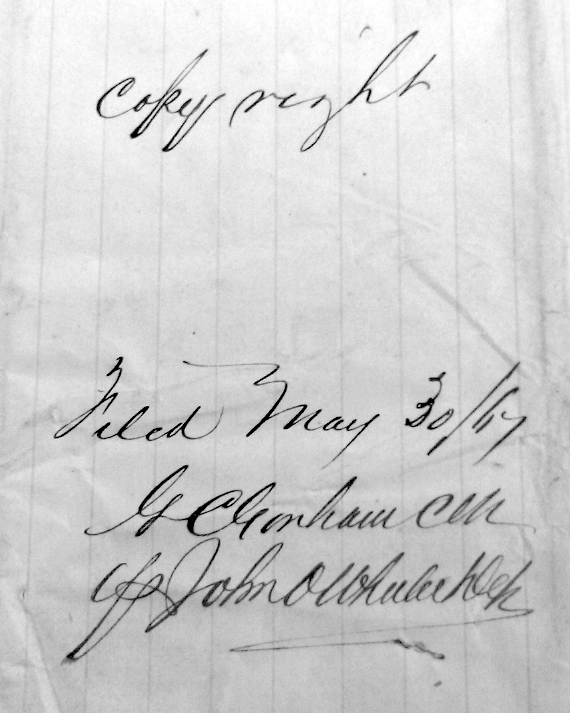 copy right
Filed May 30/67
G C Gorham Clk
By John O Wheeler Dep